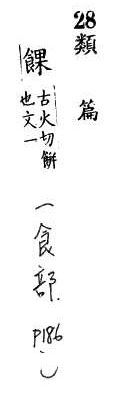 28類篇
餜 古火切餠
也文一
(食部.
P186.)